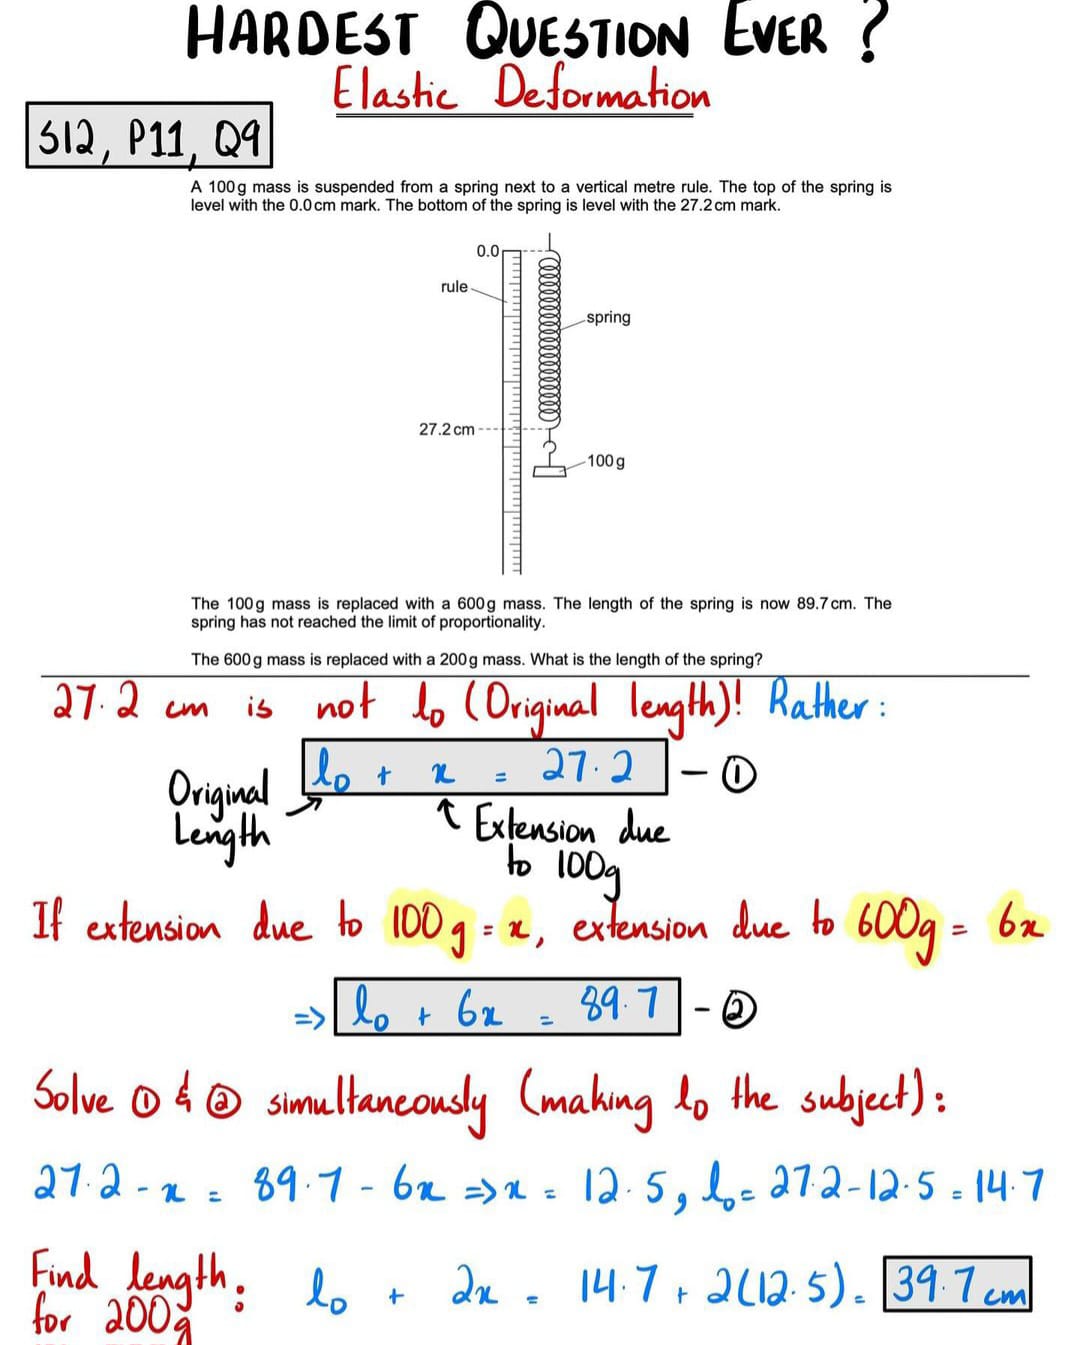 HARDEST QUESTION EVER ?
Elastic Deformation
S12, P11, Q9
A 100g mass is suspended from a spring next to a vertical metre rule. The top of the spring is
level with the 0.0cm mark. The bottom of the spring is level with the 27.2cm mark.
0.0
rule
spring
27.2cm
100g
The 100g mass is replaced with a 600g mass. The length of the spring is now 89.7cm. The
spring has not reached the limit of proportionality.
The 600g mass is replaced with a 200g mass. What is the length of the spring?
27.2 cm is not l₀ (Original length)! Rather:
l₀ + x = 27.2 - ①
Original
Length
Extension due
to 100g
If extension due to 100g = x, extension due to 600g = 6x
=> l₀ + 6x = 89.7 - ②
Solve ① & ② simultaneously (making l₀ the subject):
27.2 - x = 89.7 - 6x => x = 12.5, l₀ = 27.2-12.5 = 14.7
Find length:
for 200g
l₀ + 2x = 14.7 + 2(12.5) = 39.7 cm